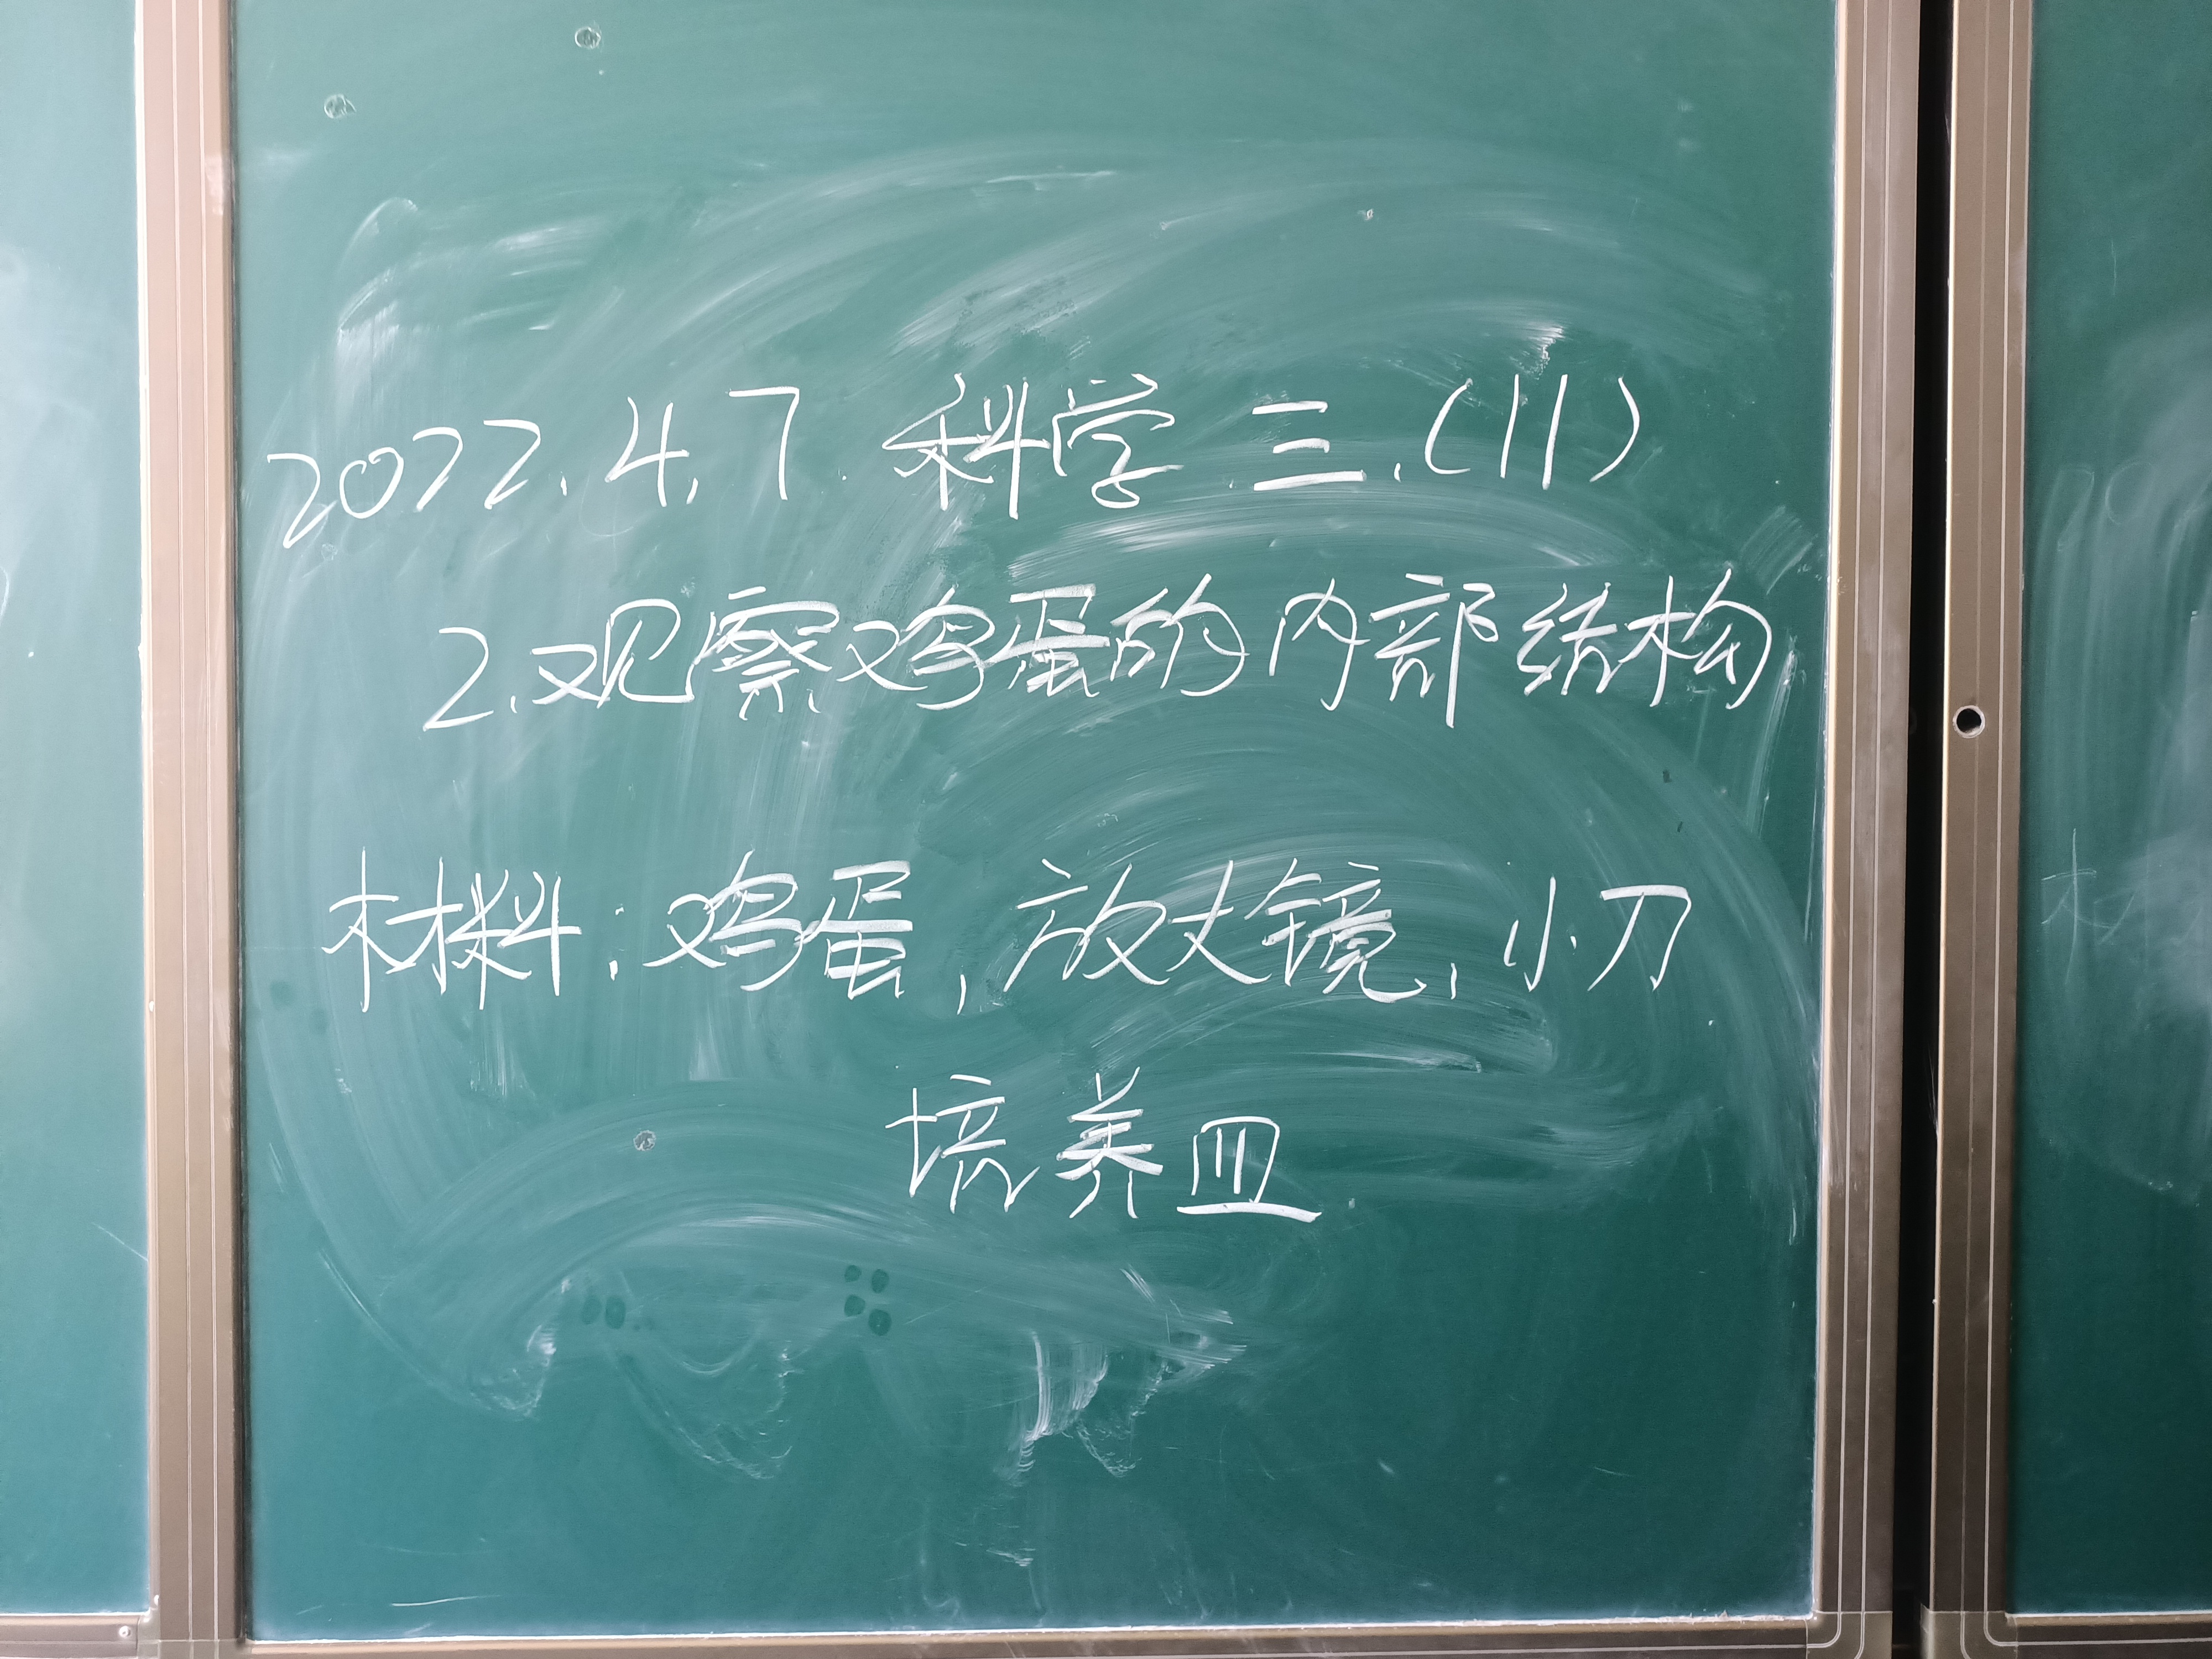 2022.4.7.科学 三.(11)
2.观察鸡蛋的内部结构
材料:鸡蛋,放大镜,小刀
培养皿